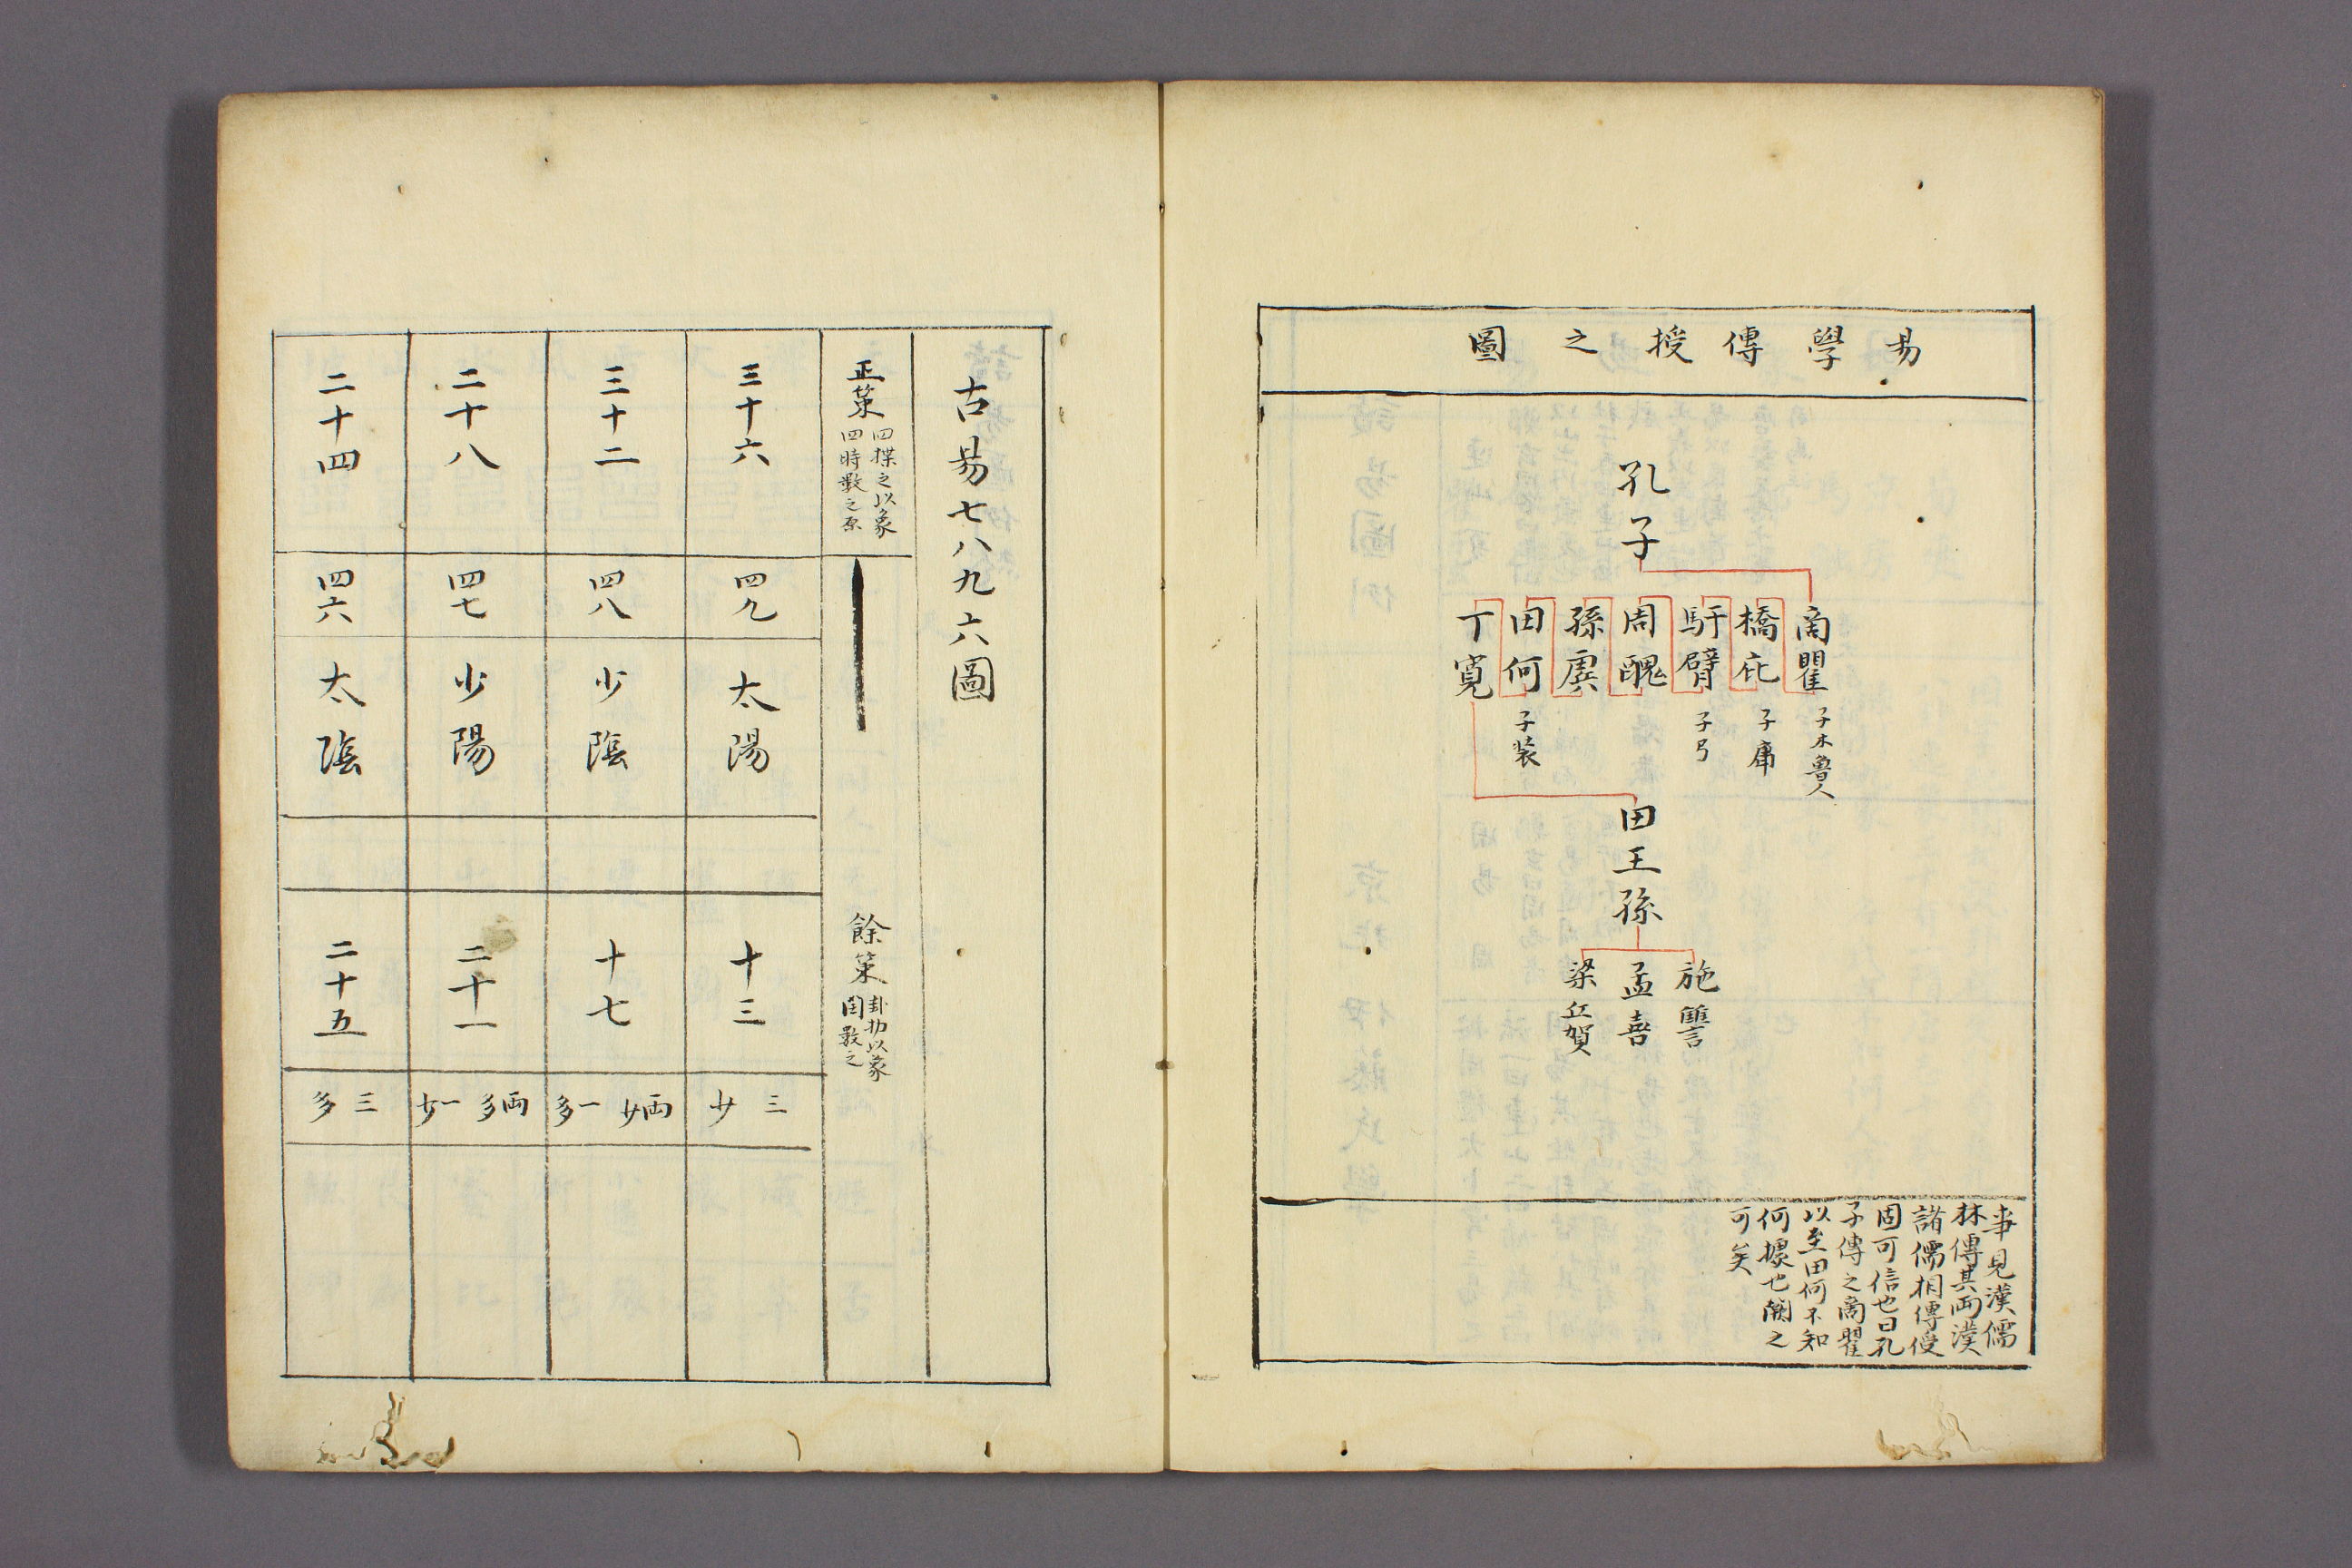 易學傳授之圖
孔子
商瞿 子木魯人
橋庇 子庸
馯臂 子弓
周醜
孫虞
田何 子装
丁寛
田王孫
施讐
孟喜
梁丘賀
事見漢儒
林傳其両漢
諸儒相傳授
固可信也曰孔
子傳之商瞿
以至田何不知
何據也闕之
可矣
古易七八九六圖
正策 四揲之以象
四時數之原
餘策 卦扐以象
閏數之
三十六
四九
太陽
十三
三少
三十二
四八
少陰
十七
両少一多
二十八
四七
少陽
二十一
両多一少
二十四
四六
太陰
二十五
三多